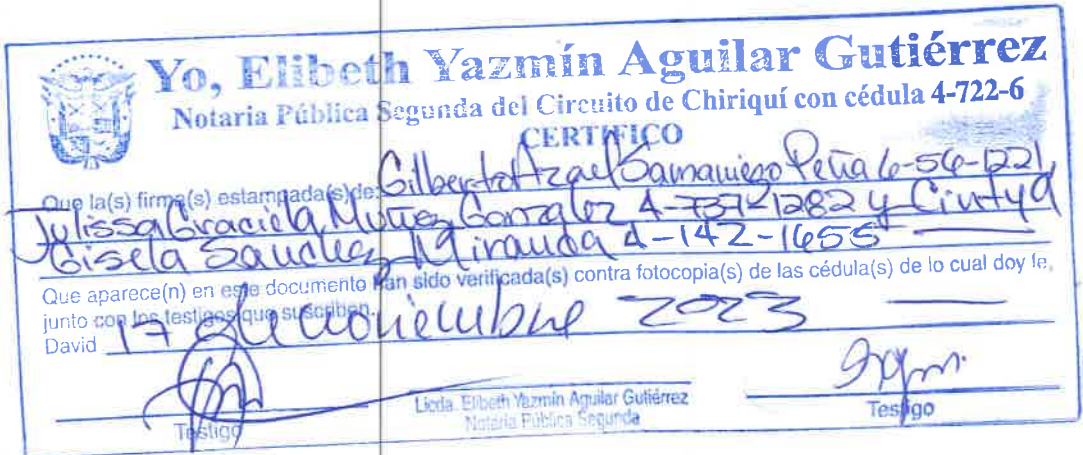 Yo, Elibeth Yazmín Aguilar Gutiérrez
Notaria Pública Segunda del Circuito de Chiriquí con cédula 4-722-6
CERTIFICO
Que la(s) firma(s) estampada(s)de: Gilberto Azael Samaniego Peña 6-56-1221,
Julissa Graciela Muñoz González 4-737-1282 y Cintya
Gisela Sanchez Miranda 4-142-1655
Que aparece(n) en este documento han sido verificada(s) contra fotocopia(s) de las cédula(s) de lo cual doy fe,
junto con los testigos que suscriben.
David 17 de noviembre 2023
Licda. Elibeth Yazmin Aguilar Gutiérrez
Testigo Notaria Pública Segunda Testigo